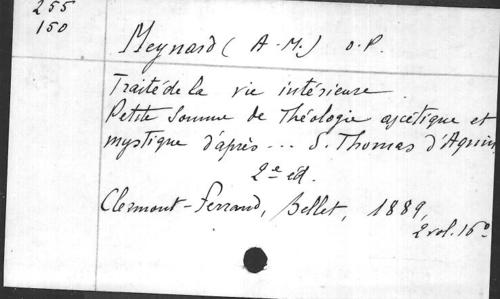 255
150
Meynard (A-M.) O.P.
Traité de la vie intérieure.
Petite Somme de Théologie ascétique et
mystique d'après ... S. Thomas d'Aquin,
2e éd.
Clermont-Ferrand, Bellet, 1889,
2 vol. 16°